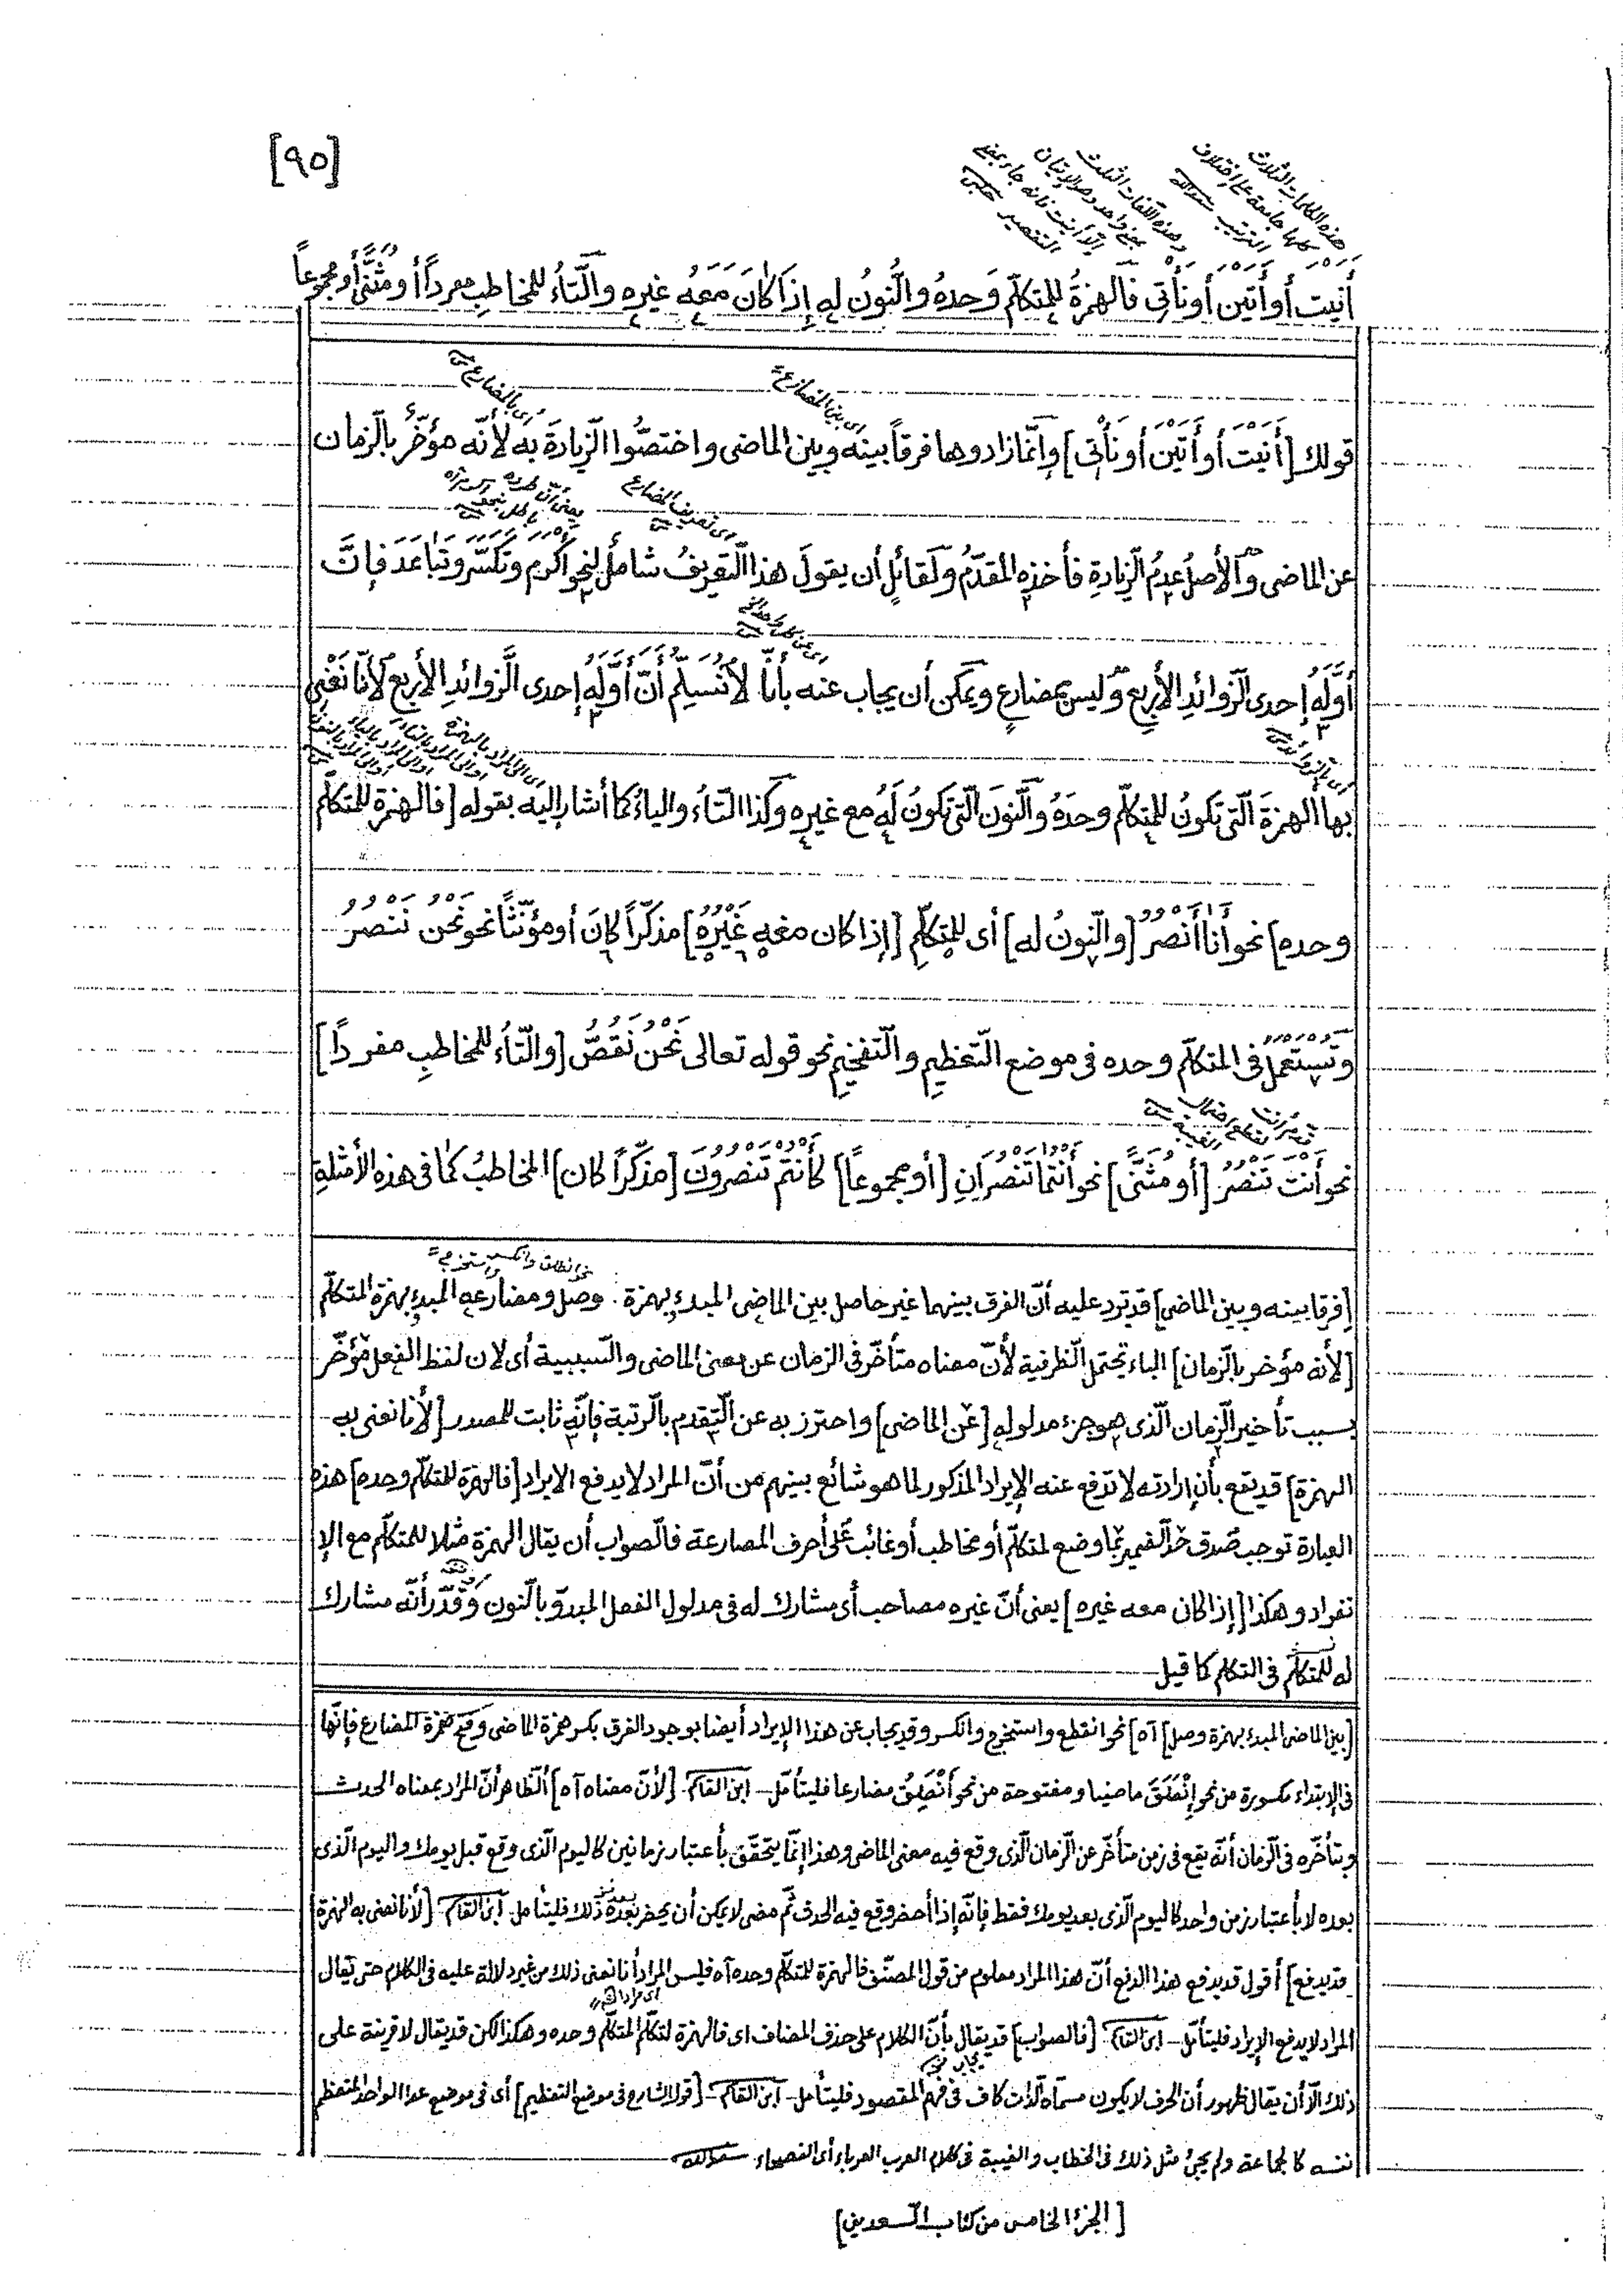 [٩٥]
هذه الكلمات الثلاث
كلها جامعة على اختلاف
الترتيب سعدالله
وهذه اللغات الثلث
بمعنى واحد وهو الإتيان
إلا أنيت فإنه جاء بمعنى
التقصير
أَنَيْتَ أو أَتَيْنَ أو نَأْتِي فالهمزةُ للمتكلّم وَحدهُ والنُّونُ له إِذَا كَانَ مَعَهُ غيره والتَّاءُ للمخاطبِ مفرداً أو مُثنًّى أو مجموعاً
اى بين المضارع
اى بالمضارع
قولك [أَنَيْتَ أو أَتَيْنَ أو نَأْتِي] وإنّما زادوها فرقاً بينه وبين الماضى واختصُّوا الزّيادةَ به لأنّه مؤخّر بالزمان
اى تعريف المضارع
عن الماضى والأصلُ عدمُ الزّيادةِ فأخذه المقدّمُ ولقائلٍ أن يقولَ هذا التّعريفُ شاملٌ لنحو أكرم وتكسّر وتباعَدَ فإنَّ
أوَّلَهُ إحدى الزّوائدِ الأربعِ وليس بمضارعٍ ويمكن أن يجاب عنه بأنّا لَا نُسَلِّمُ أنّ أوّلَهُ إحدى الزّوائدِ الأربع لأنّا نَعْنِى
اى بالزوائد
اى المراد بالهمزة
بها الهمزةَ الّتى تكونُ للمتكلّم وحدَهُ والنّونَ الّتى تكونُ لَهُ مع غيره وكذا التّاءُ والياءُ كما أشار إليه بقوله [فالهمزة للمتكلّم
وحده] نحو أَنَا أَنْصُرُ [والنّونُ له] أى للمتكلّمِ [إذا كان معه غَيْرُهُ] مذكّراً كانَ أو مؤنّثاً نحو نَحْنُ نَنْصُرُ
وتُسْتَعْمَلُ فى المتكلّم وحده فى موضع التّعظيمِ والتّفخيمِ نحو قوله تعالى نَحْنُ نَقُصُّ [والتّاءُ للمخاطبِ مفرداً]
نحو أَنْتَ تَنْصُرُ [أو مُثَنًّى] نحو أَنْتُمَا تَنْصُرَانِ [أو مجموعاً] كأَنْتُمْ تَنْصُرُونَ [مذكّراً كان] المخاطبُ كما فى هذه الأمثلةِ
نحو انطلق وانكسر واستخرج
[فرقا بينه وبين الماضى] قد ترد عليه أنّ الفرق بينهما غير حاصل بين الماضى المبدء بهمزة وصل ومضارعه المبدء بهمزة المتكلّم
[لأنه مؤخر بالزمان] الباء تحتمل الظرفية لأنّ معناه متأخّر فى الزمان عن معنى الماضى والسّببية أى لان لفظ الفعل مؤخّر
بسبب تأخير الزمان الّذى هو جزء مدلوله [عن الماضى] واحترز به عن التّقدم بالرّتبة فإنّه ثابت للمصدر [لأنا نعنى به
الهمزة] قد يقع بأن إرادته لا تدفع عنه الإيراد المذكور لما هو شائع بينهم من أنّ المراد لا يدفع الايراد [فالهمزة للمتكلّم وحده] هذه
العبارة توجب صدق حدّ الضمير بما وضع لمتكلّم أو مخاطب أو غائب على أحرف المضارعة فالصّواب أن يقال الهمزة مثلا للمتكلّم مع الإ
نفراد وهكذا [إذا كان معه غيره] يعنى أنّ غيره مصاحب أى مشارك له فى مدلول الفعل المبدوّ بالنّون وقدّر أنّه مشارك
له للمتكلّم فى التكلم كما قيل
[بين الماضى المبدء بهمزة وصل] آه] نحو انقطع واستخرج وانكسر وقد يجاب عن هذا الإيراد أيضا بوجود الفرق بكسر همزة الماضى وفتح همزة المضارع فإنّها
فى الإبتداء مكسورة من نحو إِنْطَلَقَ ماضيا ومفتوحة من نحو أَنْطَلِقُ مضارعا فليتأمّل - ابن القاسم [لأنّ معناه آه] الظّاهر أنّ المراد بمعناه الحدث
وبتأخّره فى الزمان أنّه يقع فى زمن متأخّر عن الزّمان الّذى وقع فيه معنى الماضى وهذا إنّما يتحقّق بأعتبار زمانين كاليوم الّذى وقع قبل يومك واليوم الّذى
بعده لا بأعتبار زمن واحد كاليوم الّذى بعد يومك فقط فإنّه إذا أحضر وقع فيه الحدث ثمّ مضى لا يمكن أن يحضر بعده ذلك فليتأمل ابن القاسم [لأنا نعنى به الهمزة]
قد يدفع] أقول قد يدفع هذا الدفع أنّ هذا المراد معلوم من قول المصنّف فالهمزة للمتكلّم وحده آه فليس المراد أنا نعنى ذلك من غير دلالة عليه فى الكلام حتى يقال
المراد لا يدفع الإيراد فليتأمّل - ابن القاسم [فالصواب] قد يقال بأنّ الكلام على حذف المضاف اى فالهمزة لتكلّم المتكلّم وحده وهكذا لكن قد يقال لا قرينة على
ذلك الّا أن يقال ظهور أن الحرف لا يكون مسمّاه لذات كاف فى فهم المقصود فليتأمل - ابن القاسم - [قول الشارح فى موضع التعظيم] أى فى موضع عدا الواحد المتعظم
نفسه كالجماعة ولم يجئ مثل ذلك فى الخطاب والغيبة فى كلام العرب العرباء أى الفصحاء سعدالله
[الجزء الخامس من كتاب السعدينى]